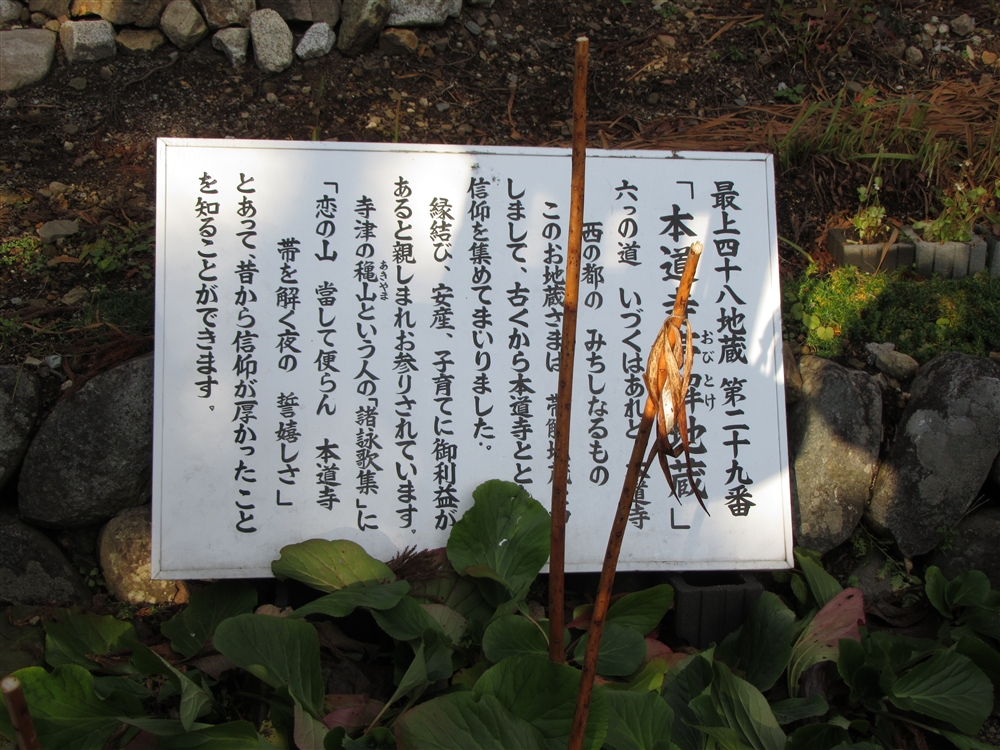 最上四十八地蔵 第二十九番
「本道寺 帯解地蔵」
おびとけ
六っの道 いづくはあれど 本道寺
西の都の みちしなるもの
このお地蔵さまは 帯解地蔵
しまして、古くから本道寺とと
信仰を集めてまいりました。
縁結び、安産、子育てに御利益が
あると親しまれ、お参りされています。
寺津の穐山という人の「諸詠歌集」に
あきやま
「恋の山 當して便らん 本道寺
帯を解く夜の 誓嬉しさ」
とあって、昔から信仰が厚かったこと
を知ることができます。